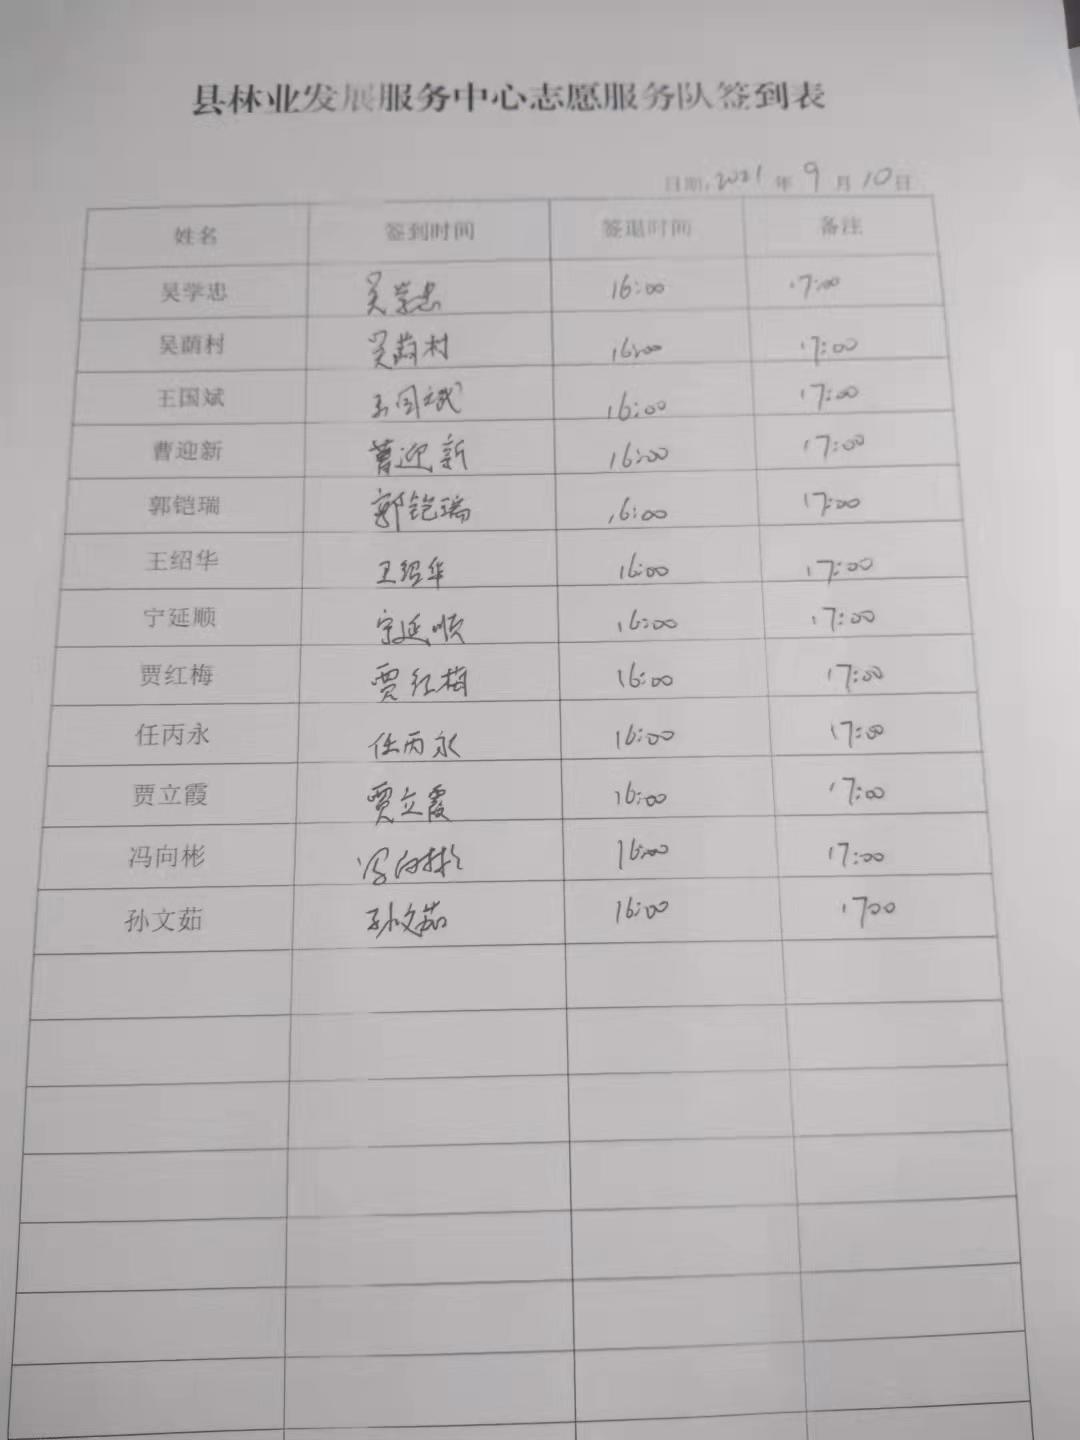 县林业发展服务中心志愿服务队签到表
日期:2021年9月10日
姓名 签到时间 签退时间 备注
吴学忠 吴学忠 16:00 17:00
吴荫村 吴荫村 16:00 17:00
王国斌 王国斌 16:00 17:00
曹迎新 曹迎新 16:00 17:00
郭铠瑞 郭铠瑞 16:00 17:00
王绍华 王绍华 16:00 17:00
宁延顺 宁延顺 16:00 17:00
贾红梅 贾红梅 16:00 17:00
任丙永 任丙永 16:00 17:00
贾立霞 贾立霞 16:00 17:00
冯向彬 冯向彬 16:00 17:00
孙文茹 孙文茹 16:00 1700